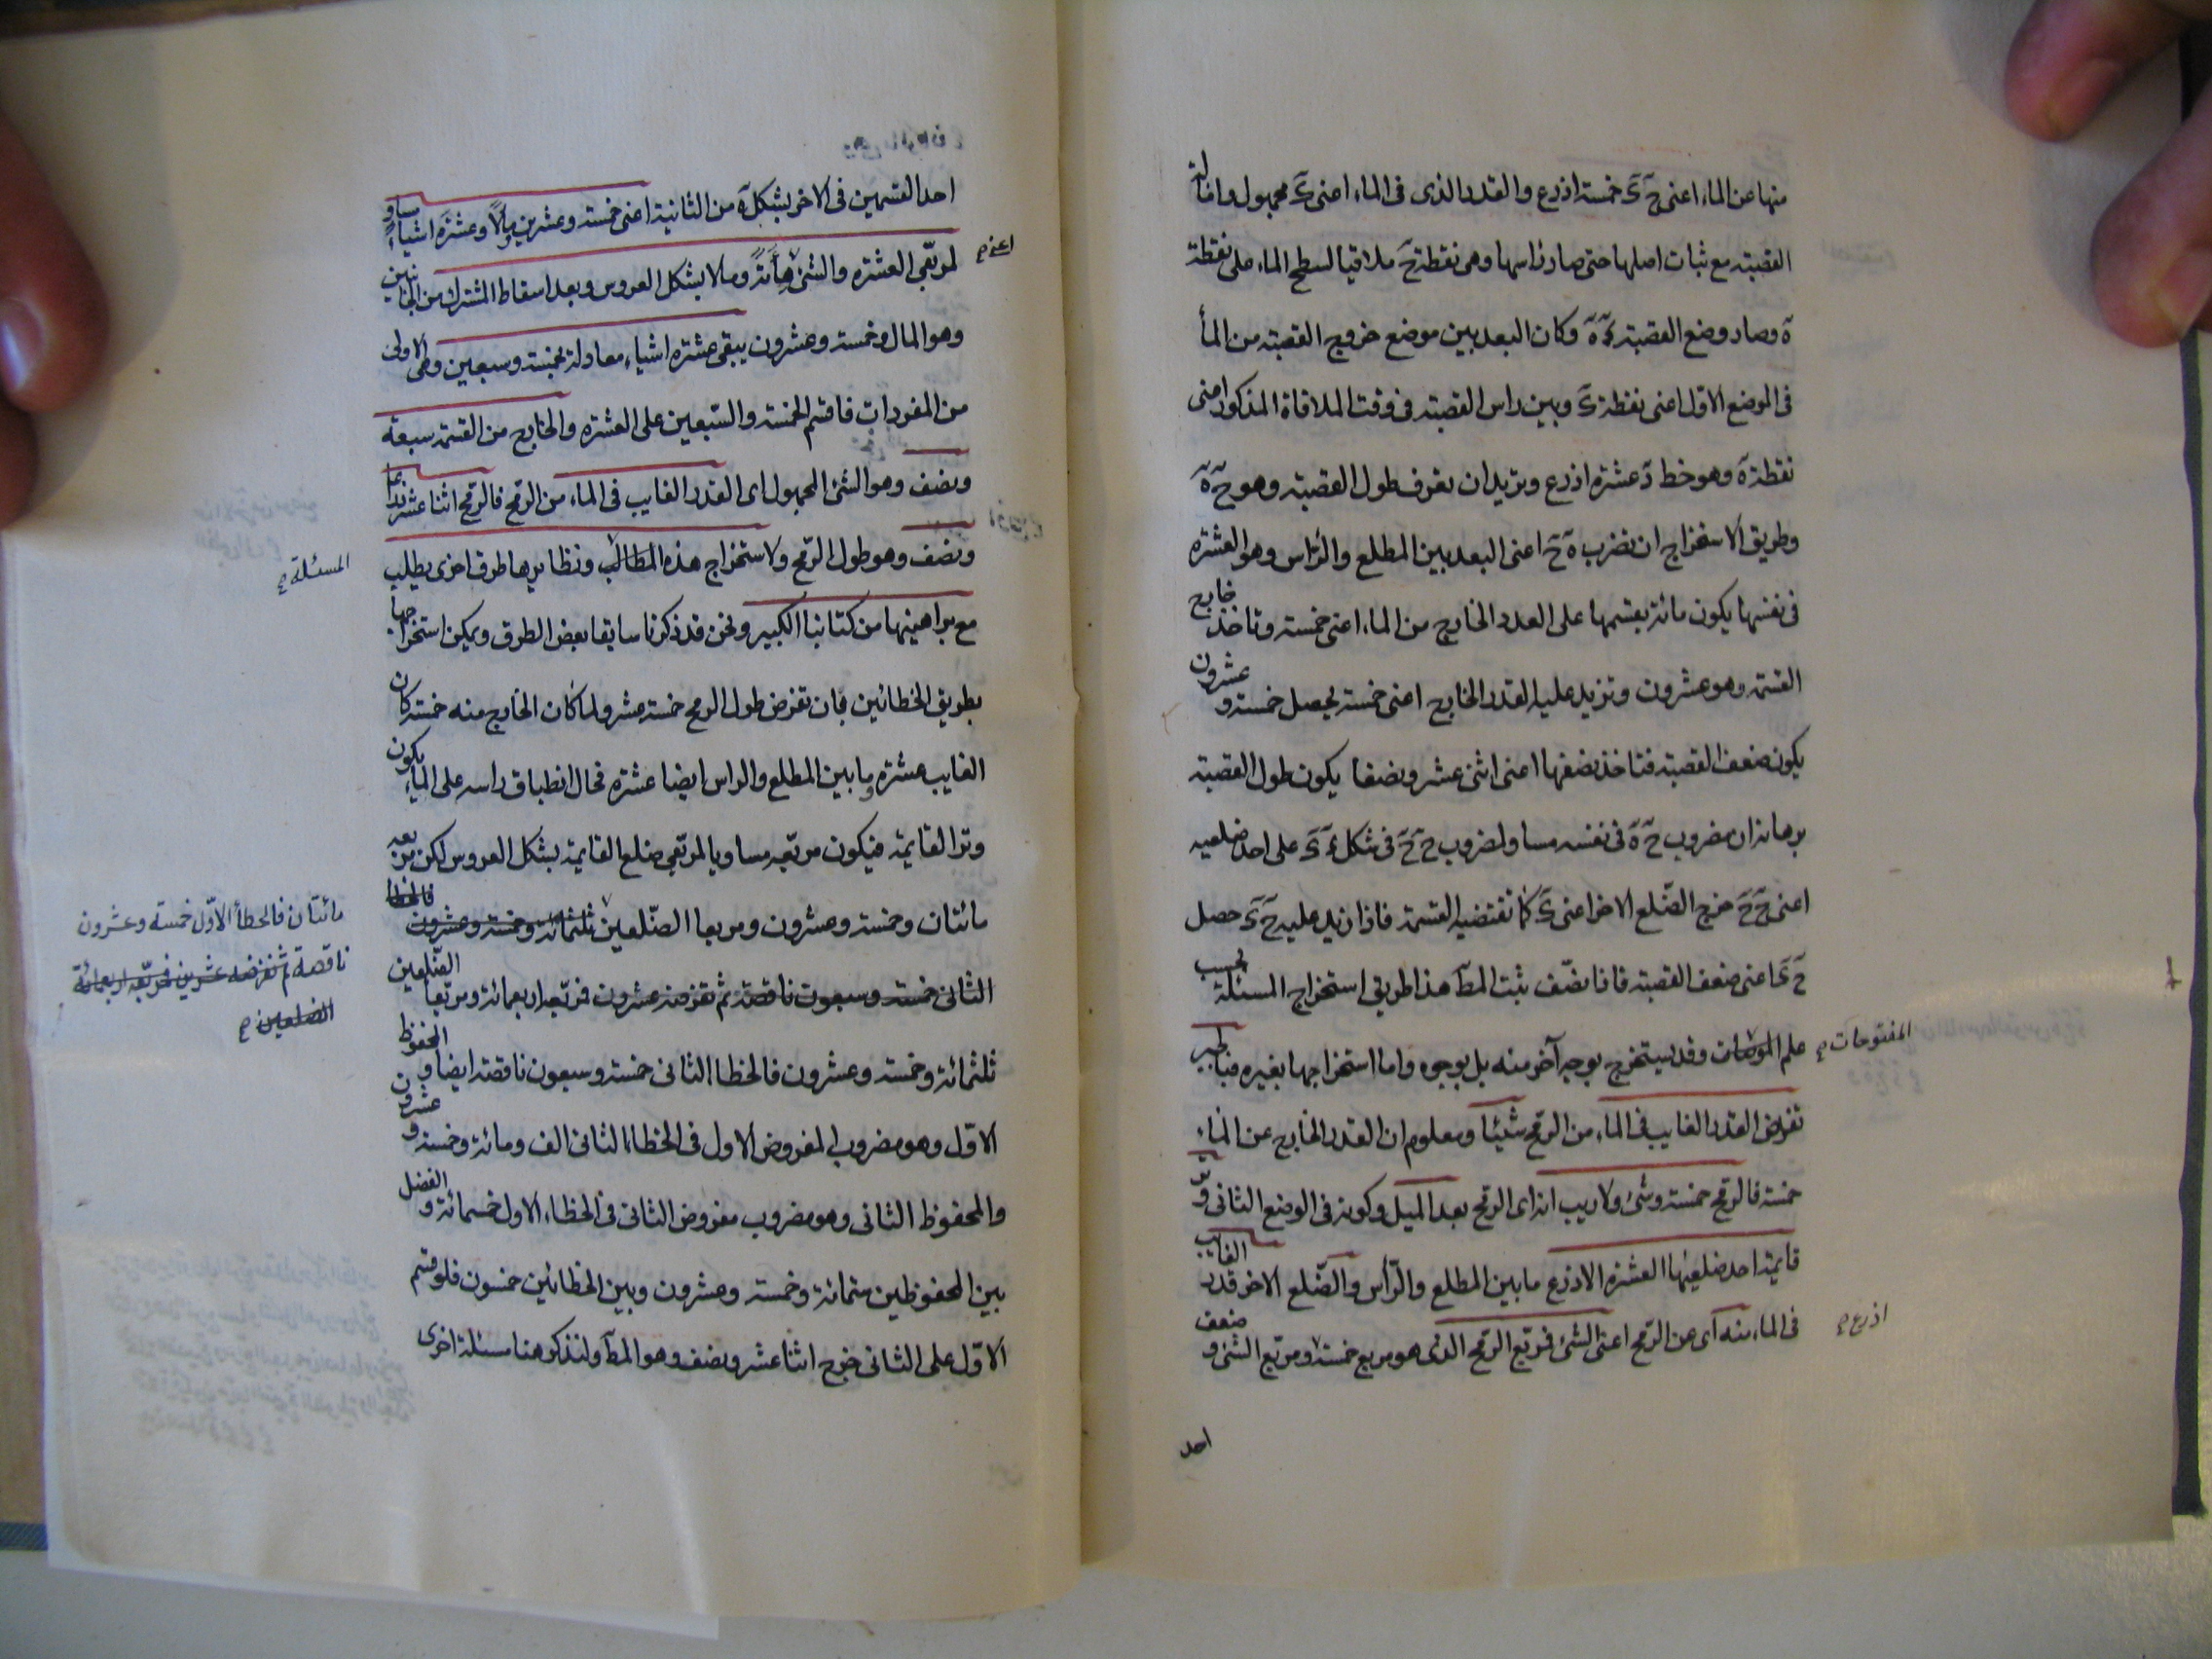 منها عن الماء اعنى حَ ءَ خمسة اذرع والقدر الذى فى الماء اعنى ءَ مجهول وامالة
القصبة مع ثبات اصلها حتى صار راسها وهى نقطة حَ ملاقيا لسطح الماء على نقطة
هَ وصار وضع القصبة هَ وكان البعد بين موضع خروج القصبة من الماء
فى الموضع الاوّل اعنى نقطة ءَ وبين راس القصبة فى وقت الملاقاة المذكور اعنى
نقطة هَ وهو خط عشرة اذرع ونريد ان نعرف طول القصبة وهو
وطريق الاستخراج ان نضرب اعنى البعد بين المطلع والراس وهو العشرة
فى نفسها يكون مائة يقسمها على العدد الخارج من الماء اعنى خمسة وناخذ خارج
القسمة وهو عشرون ونزيد عليه القدر الخارج اعنى خمسة يحصل خمسة و عشرون
يكون ضعف القصبة فناخذ نصفها اعنى اثنى عشر ونصفا يكون طول القصبة
برهانه ان مضروب حَ هَ فى نفسه مساو لمضروب فى شكل على احد ضلعيه
اعنى خرج الضّلع الاخر اعنى كما تقتضيه القسمة فاذا زيد عليه حَ ءَ حصل
اعنى ضعف القصبة فاذا نصّف ثبت المطَ هذا طريق استخراج المسئلة بحسب
علم وقد يستخرج بوجه آخر منه بل بوجوه واما استخراجها بغيره فبالجبر
المفتوحات ح
تفرض القدر الغايب فى الماء من الرّمح شيئا ومعلوم ان القدر الخارج عن الماء
خمسة فالرمح خمسة وشئ ولا ريب انه اى الرمح بعد الميل وكونه فى الوضع الثانى وتر
قايمة احد ضلعيها العشرة الاذرع ما بين المطلع والرّأس والضّلع الاخر قدر الغايب
فى الماء منه اى من الرّمح اعنى الشئ فمربّع الرّمح الذى هو مربع خمسة ومربّع الشئ و ضعف
اذرع ح
احد
احد القسمين فى الاخر بشكل من الثانية اعنى خمسة وعشرين ومالاً وعشرة اشياء مساو
لمربّعى العشرة والشئ مائة ومالا بشكل العروس وبعد اسقاط المشترك من الجانبين
اعنى ح
وهو المال وخمسة وعشرون يبقى عشرة اشياء معادلة لخمسة وسبعين وهى الاولى
من المفردات فاقسم الخمسة والسّبعين على العشرة والخارج من القسمة سبعة
ونصف وهو الشئ المجهول اى القدر الغايب فى الماء من الرّمح فالرّمح اثنا عشر ذراعا
ونصف وهو طول الرّمح ولاستخراج هذه المطالب ونظايرها طرق اخرى يطلب
المسئلة ح
مع براهينها من كتابنا الكبير ونحن قد ذكرنا سابقا بعض الطرق ويمكن استخراجها
بطريق الخطائين بان تفرض طول الرمح خمسة عشر ولما كان الخارج منه خمسة كان
الغايب عشرة وما بين المطلع والراس ايضا عشرة فحال انطباق راسه على الماء يكون
وتر القايمة فيكون مربّعه مساويا لمربّعى ضلع القايمة بشكل العروس لكن مربعه
مائتان وخمسة وعشرون ومربعا الضّلعين ثلثمائة وخمسة وعشرون فالخطا
مائتان فالخطأ الاوّل خمسة وعشرون
ناقصة ثم نفرضه عشرين فمربّعه اربعمائة
الضلعين ح
الثانى خمسة وسبعون ناقصة ثم نفرضه عشرون فمربّعه اربعمائة ومربّعا الضّلعين
ثلثمائة وخمسة وعشرون فالخطا الثانى خمسة وسبعون ناقصة ايضا و المحفوظ
الاوّل وهو مضروب المفروض الاول فى الخطاء الثانى الف ومائة وخمسة و عشرون
والمحفوظ الثانى وهو مضروب مفروض الثانى فى الخطاء الاول خمسمائة و الفضل
بين المحفوظين ستمائة وخمسة وعشرون وبين الخطائين خمسون فلو قسم
الاوّل على الثانى خرج اثنا عشر ونصف وهو المطَ ولنذكر هنا مسئلة اخرى